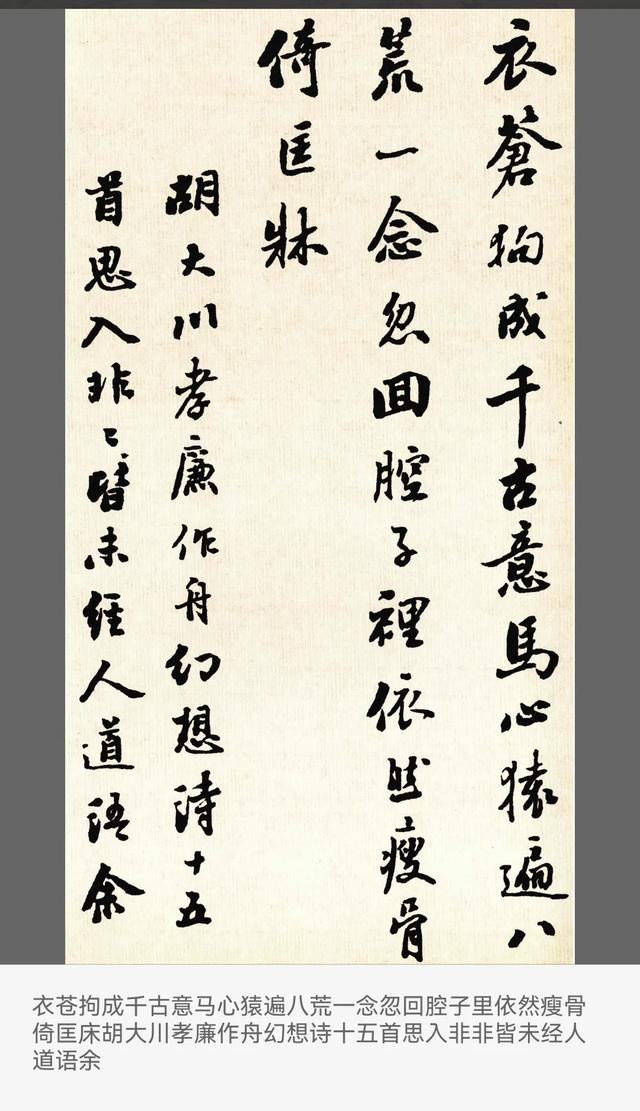 衣蒼狗成千古意馬心猿遍八
荒一念忽回腔子裡依然瘦骨
倚匡牀
胡大川孝廉作舟幻想詩十五
首思入非〻皆未經人道語余
衣苍拘成千古意马心猿遍八荒一念忽回腔子里依然瘦骨
倚匡床胡大川孝廉作舟幻想诗十五首思入非非皆未经人
道语余